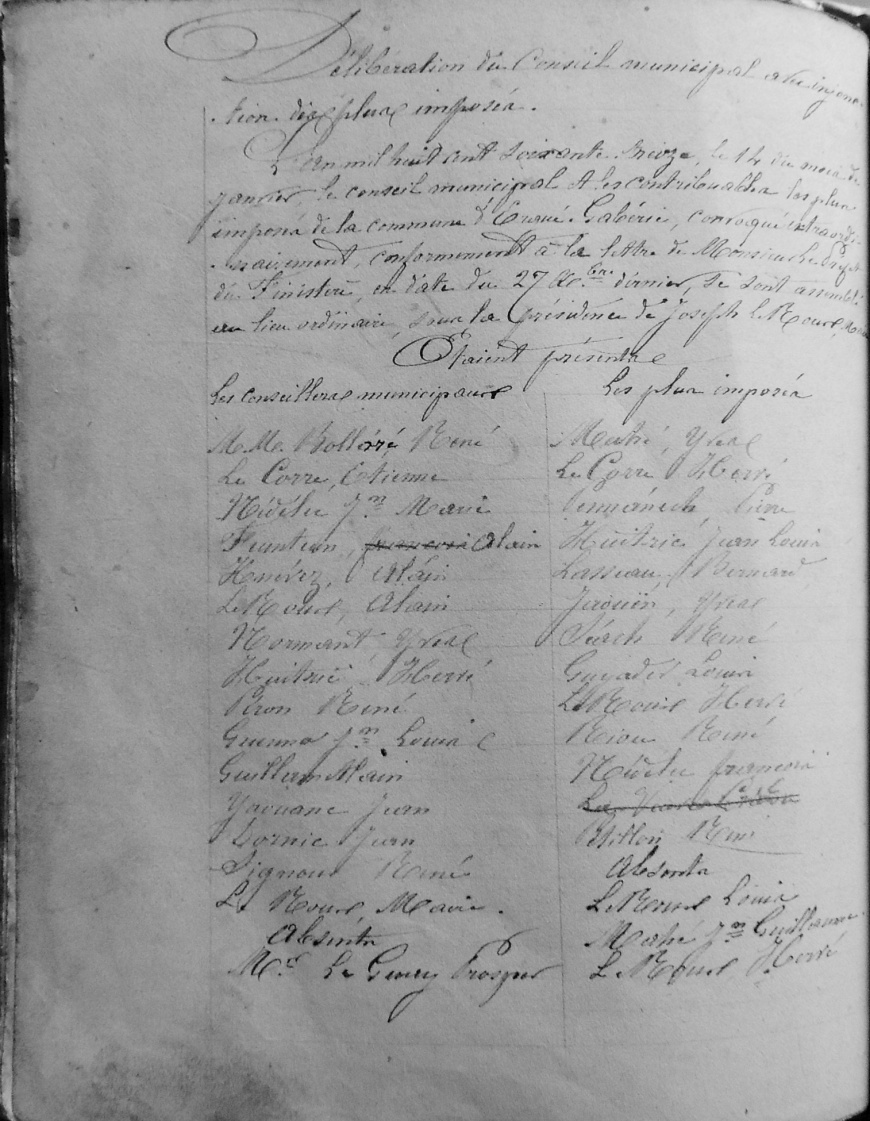 Délibération du Conseil municipal avec injonc-
-tion des plus imposés.
L'an mil huit cent soixante treize, le 14 du mois de
janvier le conseil municipal et les contribuables les plus
imposés de la commune d'Ergué-Gabéric, convoqué extraordi-
-nairement, conformément à la lettre de Monsieur le Préfet
du Finistère, en date du 27 Xbre dernier, se sont assemblés
au lieu ordinaire, sous la présidence de Joseph Le Roux, Maire
Etaient présents
Les conseillers municipaux
M.M. Bolloré, René
Le Corre, Etienne
Nédélec Jn Marie
Feunteun, Alain
Hémérez, Alain
Le Roux, Alain
Normant Yves
Huitric Hervé
Riou René
Guenno Jn Louis
Guillerm Alain
Yaouanc Jean
Lornic Jean
Signour René
Le Roux, Maire.
Absents
Mr Le Guay Prosper
Les plus imposés
Mahé, Yves
Le Corre Hervé
Pennanech, Pierre
Huitric Jean Louis
Lasseau, Bernard
Jaouën, Yves
Séach René
Guyader Louis
Le Roux Hervé
Riou René
Nédélec françois
René
Absents
Le Roux Louis
Mahé Jn Guillaume
Le Roux, Hervé